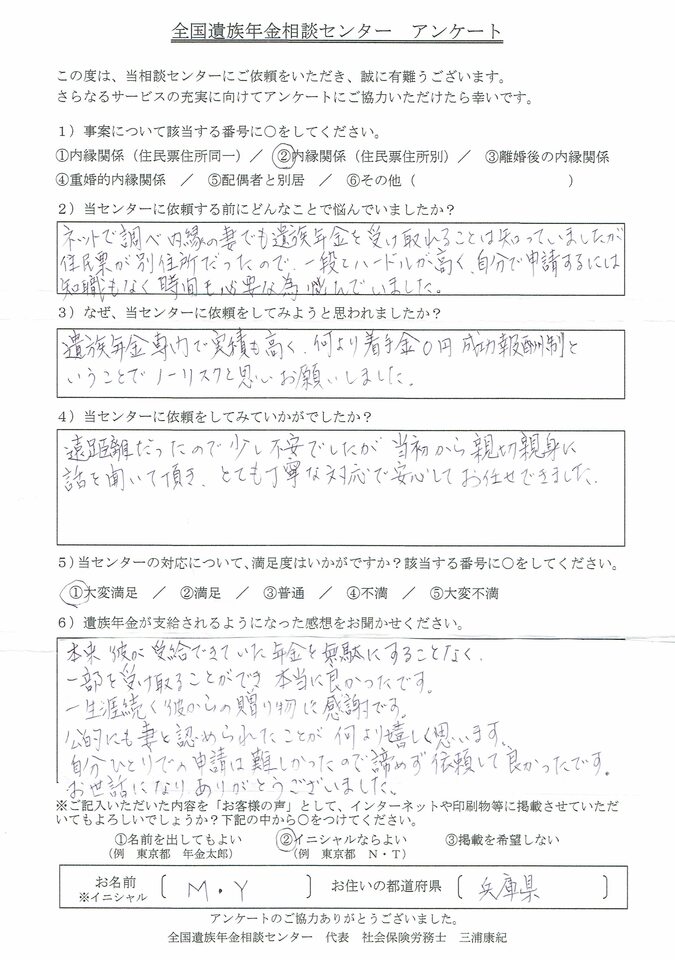 全国遺族年金相談センター　アンケート
この度は、当相談センターにご依頼をいただき、誠に有難うございます。
さらなるサービスの充実に向けてアンケートにご協力いただけたら幸いです。
1）事案について該当する番号に○をしてください。
①内縁関係（住民票住所同一）／　②内縁関係（住民票住所別）／　③離婚後の内縁関係
④重婚的内縁関係　／　⑤配偶者と別居　／　⑥その他（　　　　　　　　　）
2）当センターに依頼する前にどんなことで悩んでいましたか？
ネットで調べ内縁の妻でも遺族年金を受け取れることは知っていましたが
住民票が別住所だったので、一段とハードルが高く、自分で申請するには
知職もなく時間も必要な為悩んでいました。
3）なぜ、当センターに依頼をしてみようと思われましたか？
遺族年金専門で実績も高く、何より着手金0円 成功報酬制と
いうことでノーリスクと思いお願いしました。
4）当センターに依頼をしてみていかがでしたか？
遠距離だったので少し不安でしたが 当初から親切親身に
話を聞いて頂き、とても丁寧な対応で安心してお任せできました。
5）当センターの対応について、満足度はいかがですか？該当する番号に○をしてください。
①大変満足　／　②満足　／　③普通　／　④不満　／　⑤大変不満
6）遺族年金が支給されるようになった感想をお聞かせください。
本来彼が受給できていた年金を無駄にすることなく、
一部を受け取ることができ 本当に良かったです。
一生涯続く彼からの贈り物に感謝です。
公的にも妻と認められたことが 何より嬉しく思います。
自分ひとりでの申請は難しかったので諦めず依頼して良かったです。
お世話になりありがとうございました。
※ご記入いただいた内容を「お客様の声」として、インターネットや印刷物等に掲載させていただ
いてもよろしいでしょうか？下記の中から○をつけてください。
①名前を出してもよい　②イニシャルならよい　③掲載を希望しない
（例　東京都　年金太郎）　（例　東京都　N・T）
お名前　〔　M・Y　〕　お住いの都道府県　〔　兵庫県　〕
※イニシャル
アンケートのご協力ありがとうございました。
全国遺族年金相談センター　代表　社会保険労務士　三浦康紀